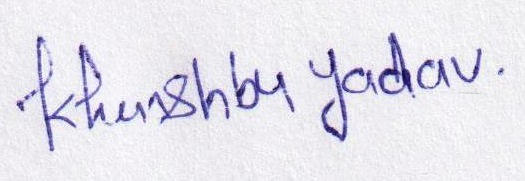 Khushbu Yadav.